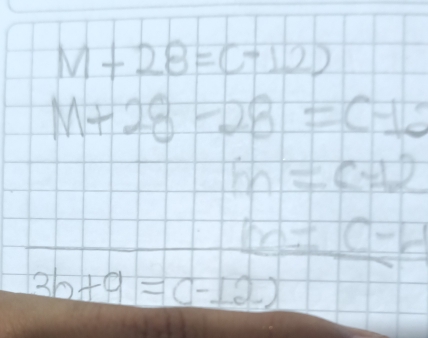 M + 28 = (-12)
M + 28 - 28 = (-12
m = (-12
m = (-
3b + 9 = (-12)